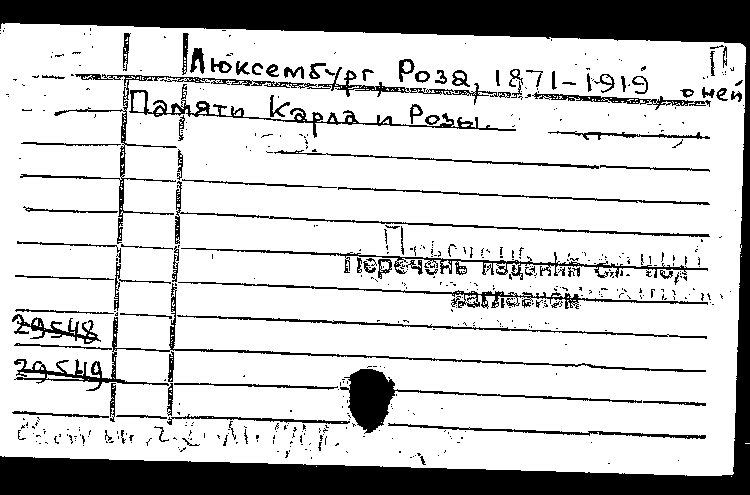 П.
Люксембург, Роза, 1871-1919, о ней
Памяти Карла и Розы.
Перечень издания см. под
заглавием
29548
29549